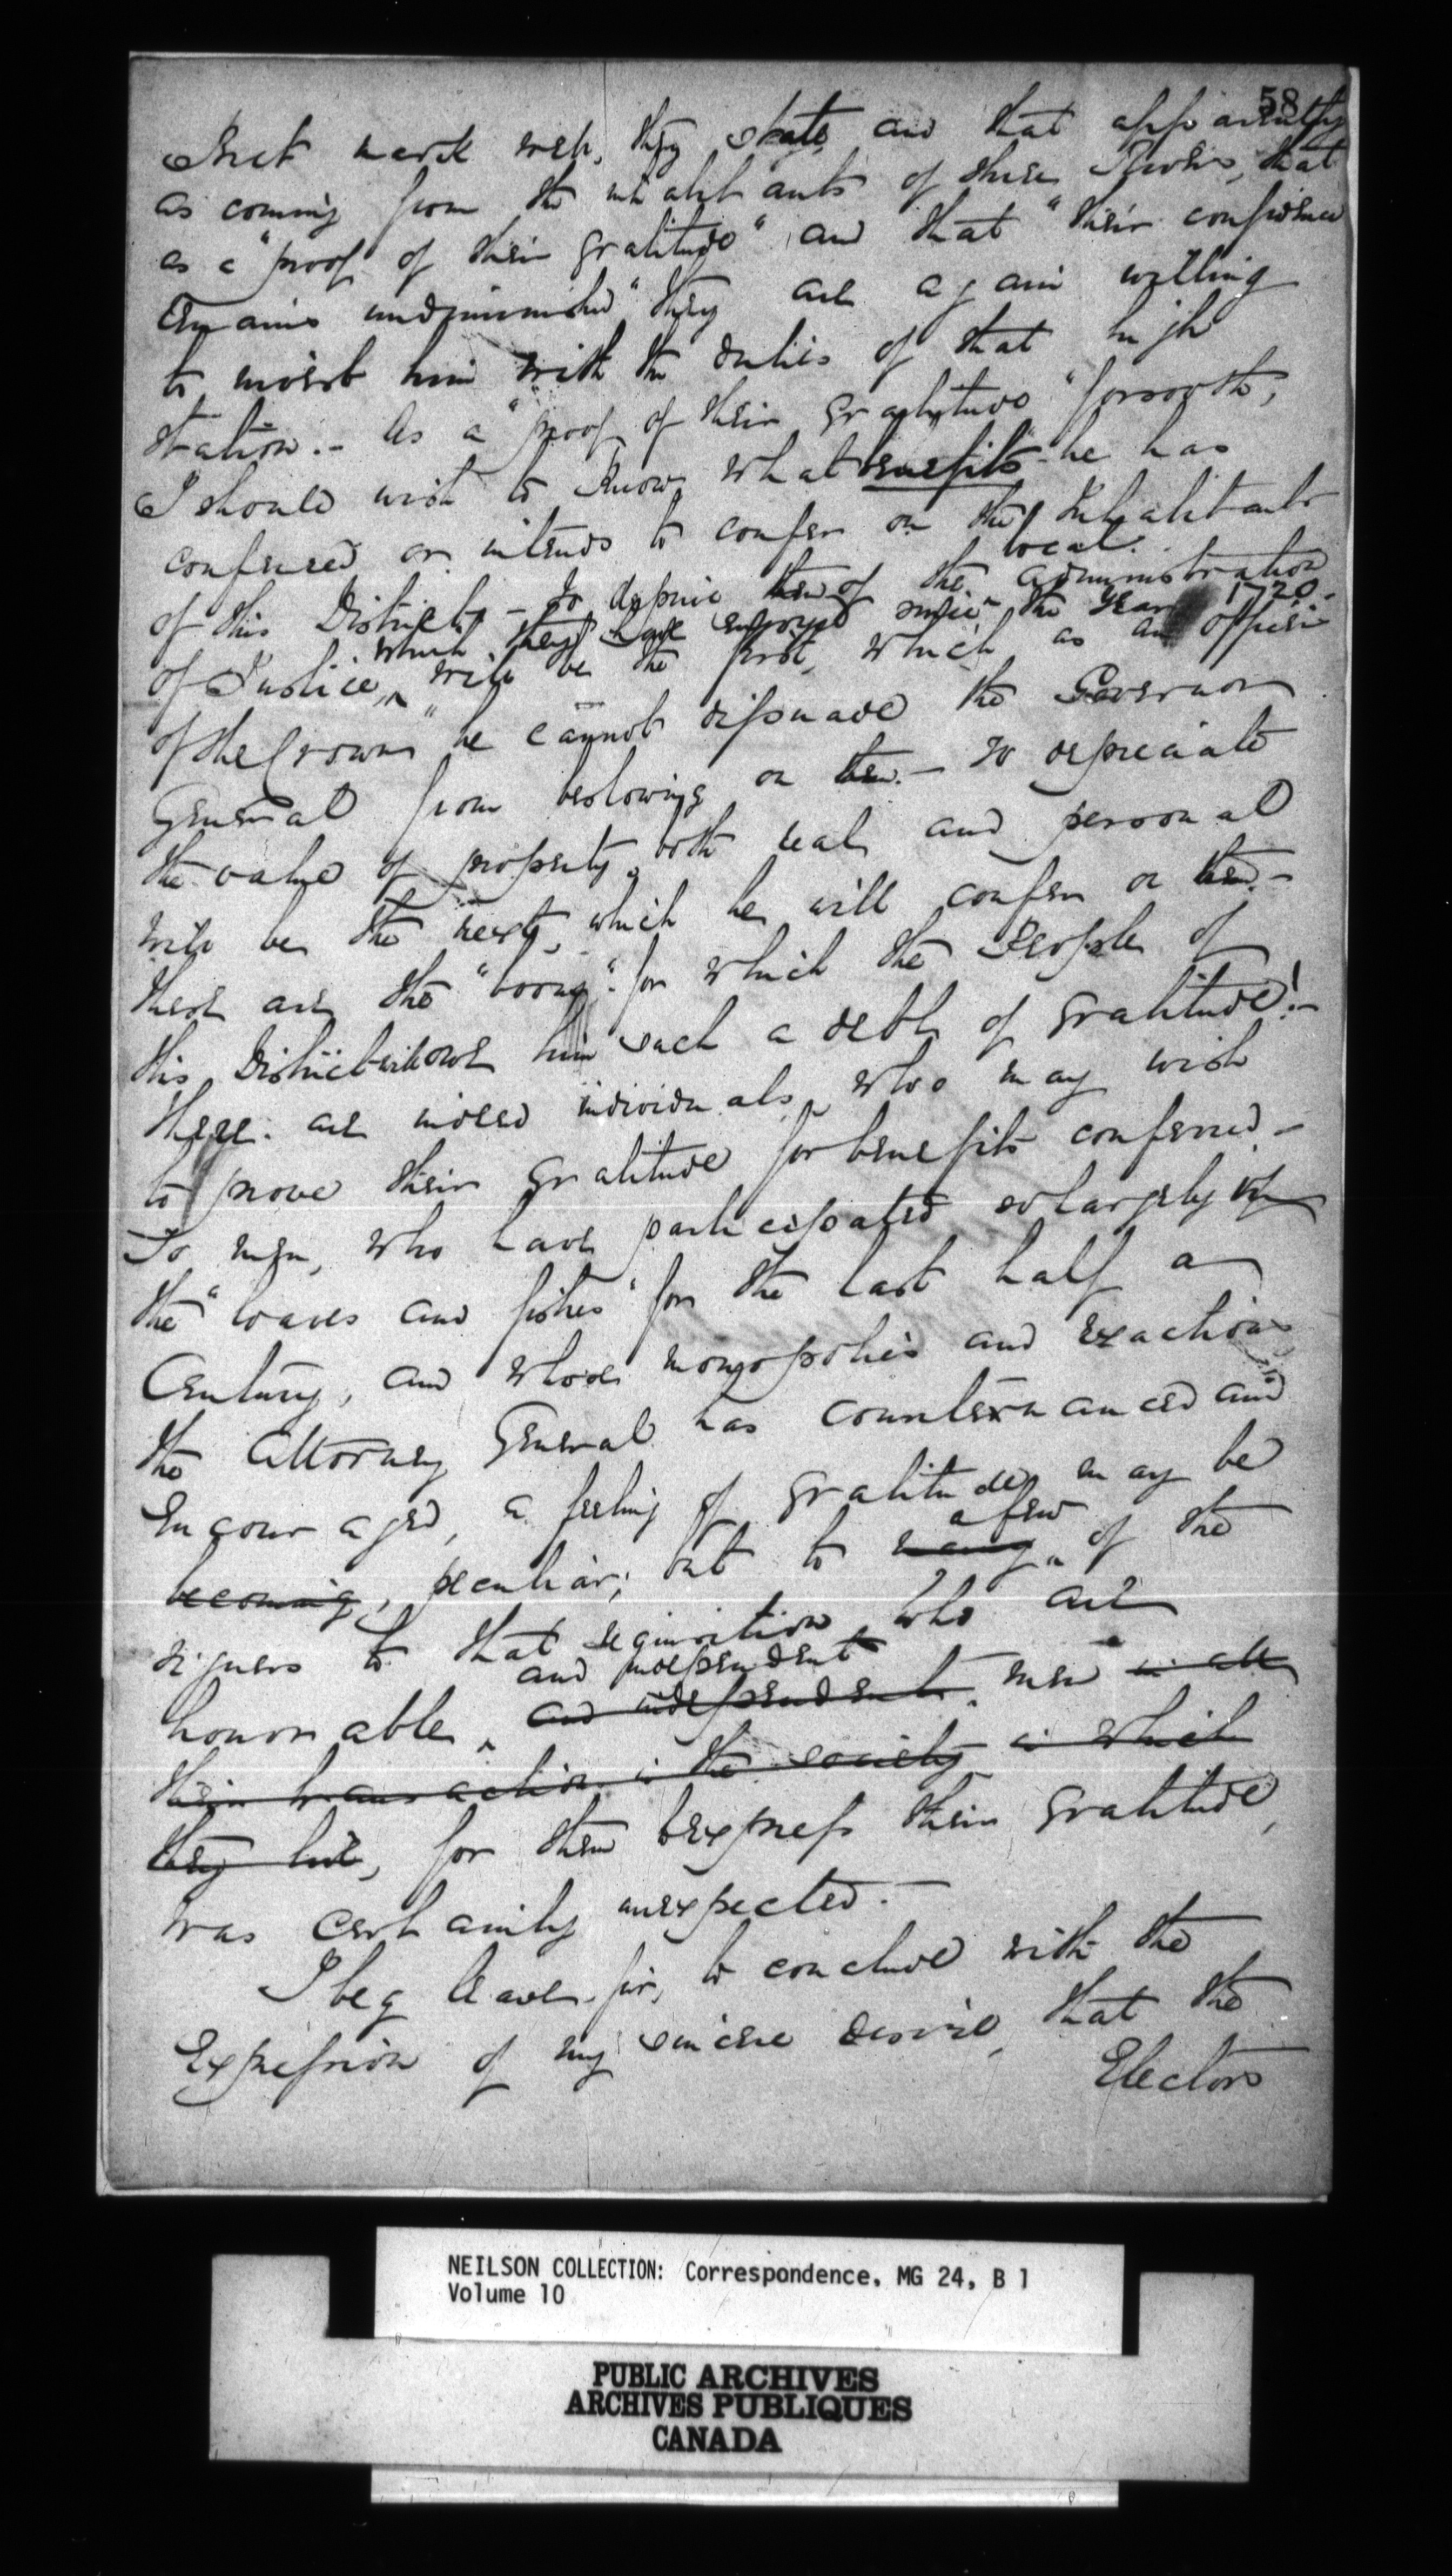 58
But mark well, they state, and that apparently
as coming from the inhabitants of Three Rivers, that
as a "proof of their gratitude" and that "their confidence
remains undiminished" they are again willing
to invest him with the duties of that high
station.- As a "proof of their gratitude" forsooth,
I should wish to know what benefits he has
conferred or intends to confer on the Inhabitants
of this District - To deprive them of the local administration
of Justice, which they have enjoyed since the year 1720.
will be the first, which as an officer
of the Crown "he cannot dissuade the Governor
General from bestowing on them.- To depreciate
the value of property, both real and personal
will be the next, which he will confer on them.-
these are the "boons" for which the People of
this District will owe him such a debt of gratitude!-
There are indeed individuals, who may wish
to prove their gratitude for benefits conferred -
To men, who have participated so largely in
the "loaves and fishes" for the last half a
Century, and whose monopolies and exactions
the Attorney General has countenanced and
encouraged, a feeling of gratitude may be
becoming, peculiar; but to many a few of the
signers to that requisition, who are
honorable and independent and independent men in all
their transactions in the society in which
they live, for them to express their gratitude,
was certainly unexpected.-
I beg leave, sir, to conclude with the
Expression of my sincere desire, that the
Electors
NEILSON COLLECTION: Correspondence, MG 24, B 1
Volume 10
PUBLIC ARCHIVES
ARCHIVES PUBLIQUES
CANADA